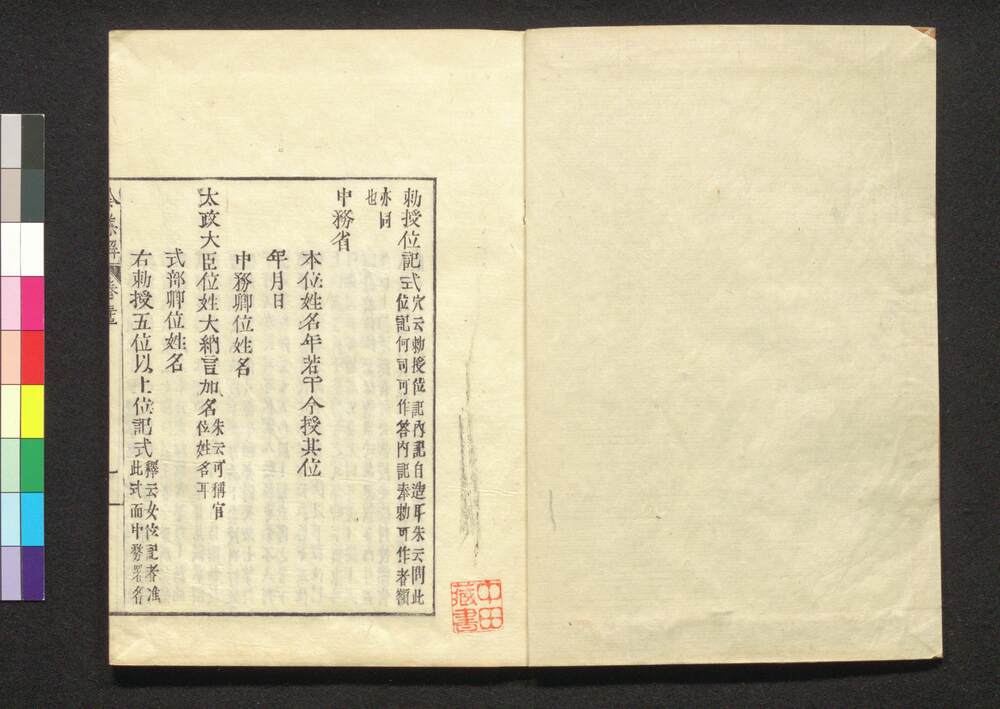 勅授位記式穴云勅授位記内記自造耳朱云問此
位記何司可作答内記奉勅可作者額
亦同
也
中務省
本位姓名年若干今授其位
年月日
中務卿位姓名
太政大臣位姓大納言加名朱云可稱官
位姓名耳
式部卿位姓名
右勅授五位以上位記式釋云女位記者准
此式而中務署名
令集解
中田
藏書